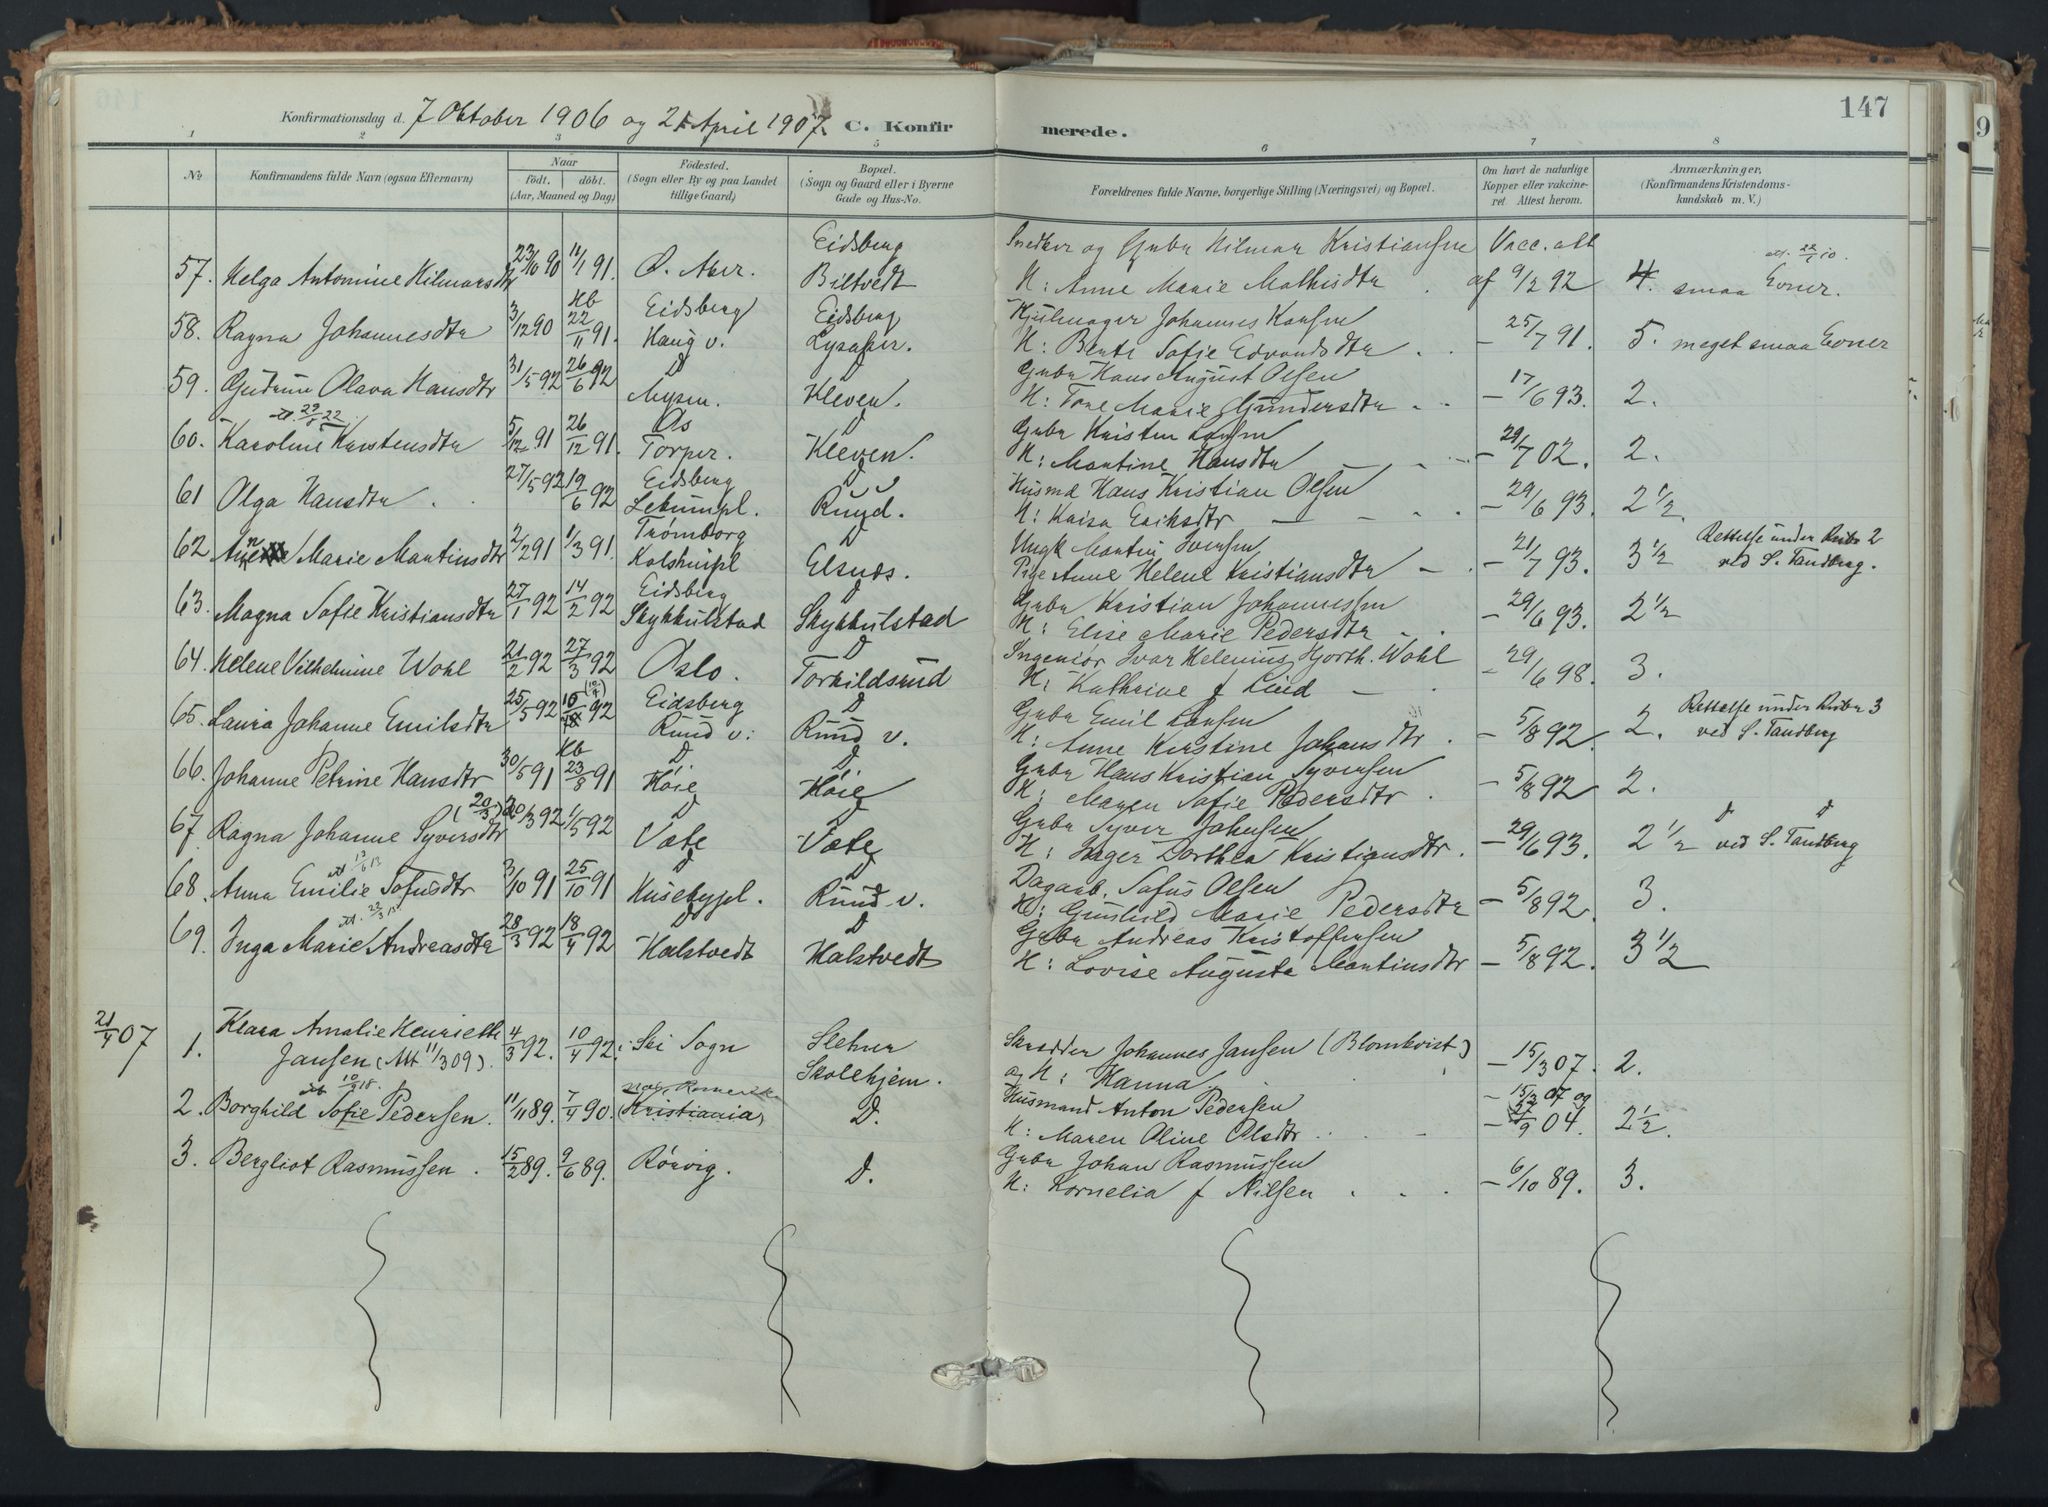 147
Konfirmationsdag d. 7 Oktober 1906 og 21 April 1907. C. Konfirmerede.
1 2 3 5 6 7 8
No
Konfirmandens fulde Navn (ogsaa Efternavn)
Naar
födt. döbt.
(Aar, Maaned og Dag)
Födested.
(Sogn eller By og paa Landet
tillige Gaard)
Bopæl.
(Sogn og Gaard eller i Byerne
Gade og Hus-No.
Forældrenes fulde Navne, borgerlige Stilling (Næringsvei) og Bopæl.
Om havt de naturlige
Kopper eller vakcine-
ret. Attest herom.
Anmærkninger,
(Konfirmandens Kristendoms-
kundskab m. V.)
Eidsberg Snedker og Gbr Hilmar Kristiansen Vacc. att
57. Helga Antomine Hilmarsdtr 23/10 90 11/1 91. Ø. Aker. Biltvedt H: Anne Marie Mathisdtr af 9/2 92 4. smaa Evner. att. 22/1 10.
58. Ragna Johannesdtr 3/12 90 Hb 22/11 91. Eidsberg Haug v. Eidsberg Hjulmager Johannes Hansen
H: Berte Sofie Edvardsdtr - 25/7 91. 5. meget smaa Evner
59. Gudrun Olava Hansdtr 31/5 92 26/6 92 D Mysen. D Kleven. Gbr Hans August Olsen
H: Tone Marie Gundersdtr - 17/6 93. 2.
60. Karoline Kristensdtr 5/12 91 26/12 91. Os Torper. D Kleven. Gbr Kristen Larsen
H: Martine Hansdtr - 29/7 02. 2.
61 Olga Hansdtr 27/5 92 19/6 92 Eidsberg Lekumpl. D Ruud. Husmd Hans Kristian Olsen
H: Kaisa Eriksdtr - 29/6 93. 2 1/2.
62 Marie Martinsdtr 2/2 91 1/3 91. Trømborg D Elsnes. Ungk Martin Iversen
Pige Anne Helene Kristiansdtr - 21/7 93. 3 1/2 Rettelse under Rubr 2
ved S. Tandberg.
63. Magna Sofie Kristiansdtr 27/1 92 14/2 92 Eidsberg Skykkulstad D Skykkulstad Gbr Kristian Johannessen
H: Elise Marie Pedersdtr - 29/6 93. 2 1/2
64. Helene Vilhelmine Wohl 21/2 92 27/3 92 Oslo. D Torkildsrud Ingeniør Ivar Helenius Hjorth Wohl
H: Kathrine f Lind - 29/6 98. 3.
65. Laura Johanne Emilsdtr 25/5 92 92 Eidsberg Ruud v. D Ruud v. Gbr Emil Larsen
H: Anne Kirstine Johansdtr. - 5/8 92. 2. Rettelse under Rubr 3
ved S. Tandberg
66. Johanne Petrine Hansdtr 30/5 91 Hb 23/8 91 D Høie D Høie Gbr Hans Kristian Syversen
H: Maren Sofie Pedersdtr. - 5/8 92 2.
67 Ragna Johanne Syversdtr (20/3) 20/3 92 1/5 92 D Vate D Vate Gbr Syver Johnsen
H: Inger Dorthea Kristiansdtr. - 29/6 93. 2 1/2 D D
ved S. Tandberg
68. Anna Emilie Sofusdtr 3/10 91 25/10 91 D Husebypl. D Ruud v. Dagarb. Sofus Olsen
H: Gunhild Marie Pedersdtr - 5/8 92. 3.
69. Inga Marie Andreasdtr 28/3 92 18/4 92 D Halstvedt D Halstvedt Gbr Andreas Kristoffersen
H: Lovise Augusta Martinsdtr - 5/8 92. 3 1/2
21/4 07
1. Klara Amalie Henriette
Jansen (Att 11/3 09). 4/3 92. 10/4 92. Ski Sogn Sletner
Skolehjem. Skrædder Johannes Jansen (Blomkvist)
og H: Hanna. - 15/3 07. 2.
2. Borghild Sofie Pedersen. 11/11 89. 7/4 90. (Kristiania) D. Husmand Anton Pedersen
H: Maren Oline Olsdtr. - 15/3 07 og
- 27/9 04. 2 1/2.
3. Bergliot Rasmussen. 15/2 89. 9/6 89. Rörvig. D. Gbr Johan Rasmussen
H: Kornelia f Nilsen - 6/10 89. 3.